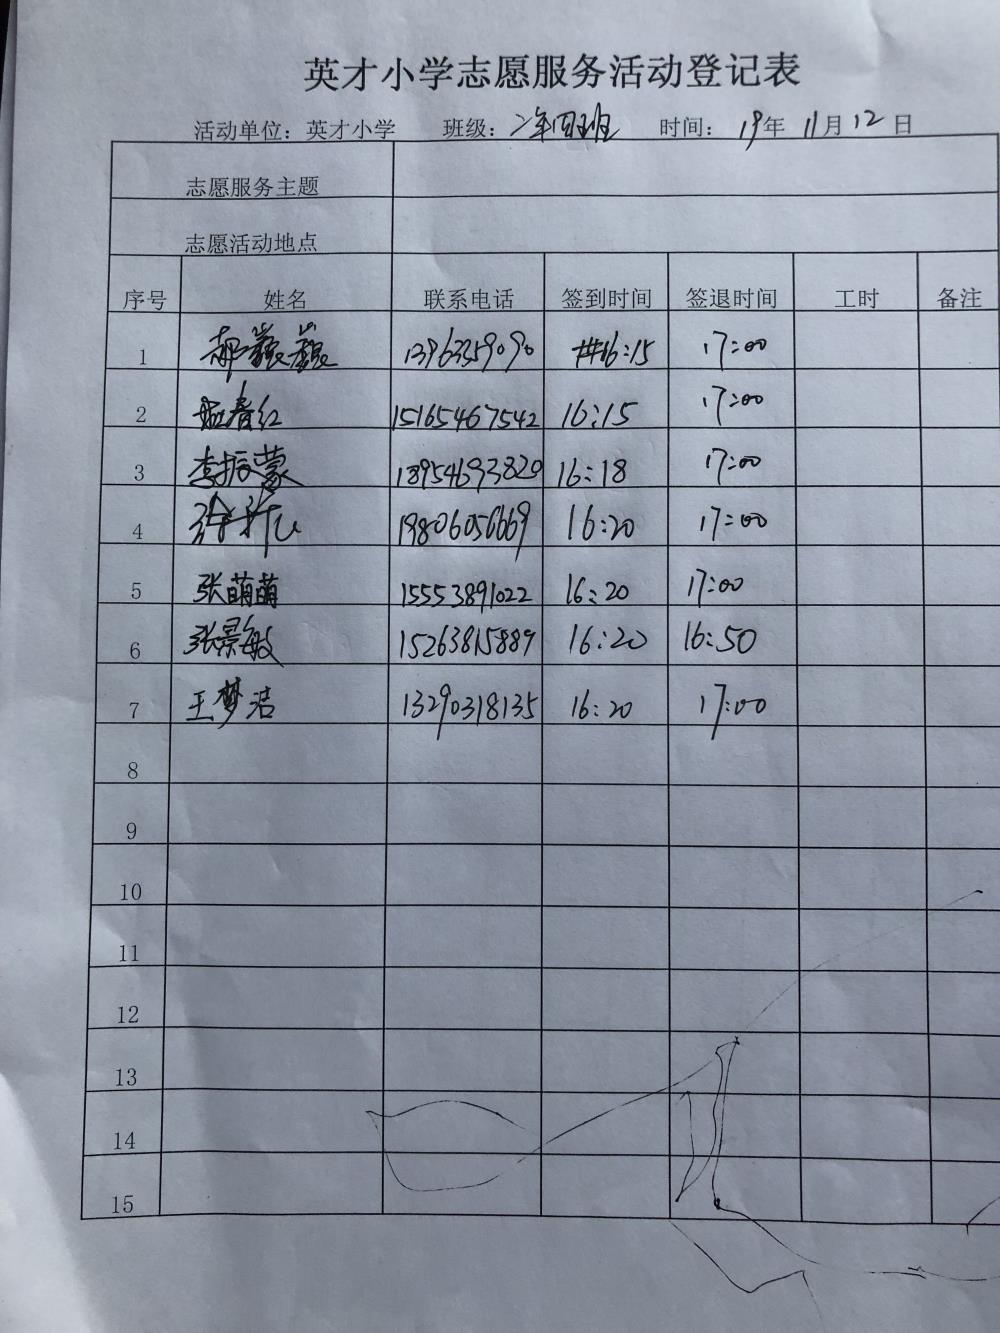 英才小学志愿服务活动登记表
活动单位：英才小学 班级：二年四班 时间：19年11月12日
志愿服务主题
志愿活动地点
序号 姓名 联系电话 签到时间 签退时间 工时 备注
1 郝巍巍 13963359090 16:15 17:00
2 春红 15165467542 16:15 17:00
3 李振蒙 18954693820 16:18 17:00
4 19806056669 16:20 17:00
5 张萌萌 15553891022 16:20 17:00
6 张景敏 15263815889 16:20 16:50
7 王梦洁 13290318135 16:20 17:00
8
9
10
11
12
13
14
15